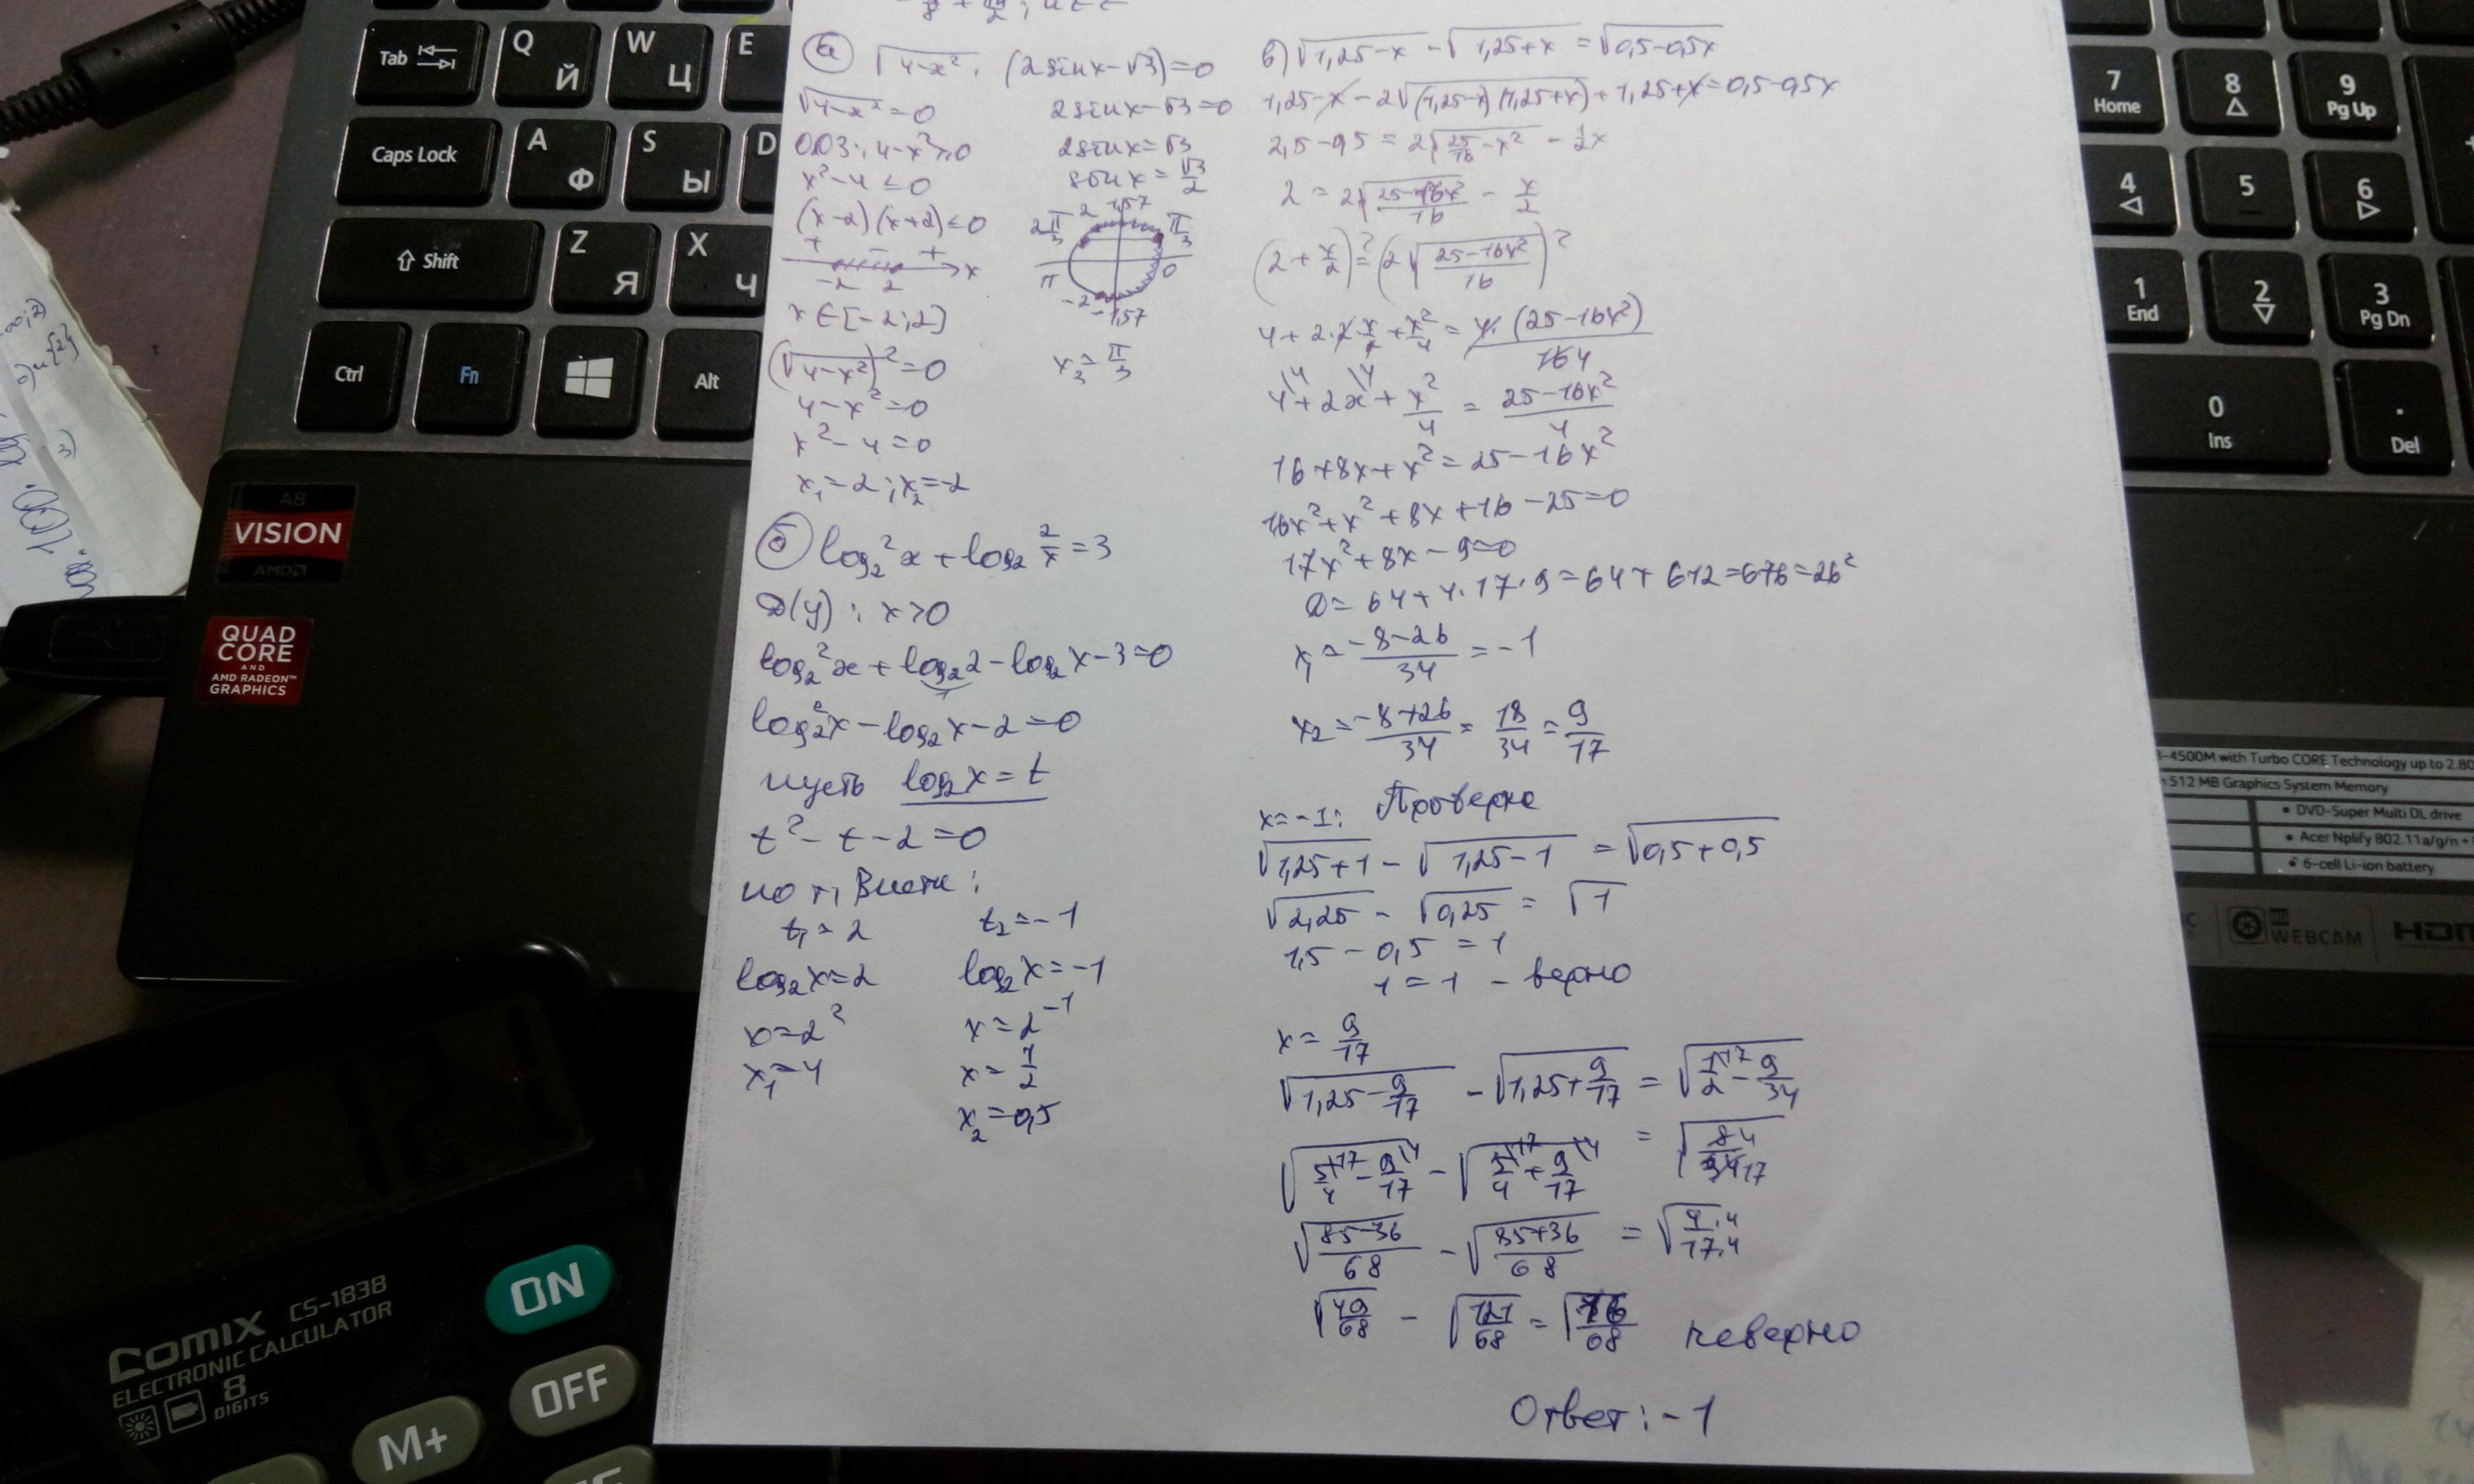 а) √(4-x²) · (2sinx-√3)=0
√(4-x²)=0
ОДЗ: 4-x²≥0
x²-4≤0
(x-2)(x+2)≤0
+ - +
-2 2 x
x∈[-2;2]
(√(4-x²))²=0
4-x²=0
x²-4=0
x₁=2; x₂=-2
2sinx-√3=0
2sinx=√3
sinx=√3/2
2 1,57
2π/3 π/3
π 0
-2 -1,57
x₃=π/3
б) log₂²x+log₂ 2/x=3
D(y): x>0
log₂²x+log₂2-log₂x-3=0
1
log₂²x-log₂x-2=0
пусть log₂x=t
t²-t-2=0
по т. Виета:
t₁=2 t₂=-1
log₂x=2 log₂x=-1
x=2² x=2⁻¹
x₁=4 x=1/2
x₂=0,5
в) √(1,25-x) - √(1,25+x) = √(0,5-0,5x)
1,25-x-2√((1,25-x)(1,25+x))+1,25+x=0,5-0,5x
2,5-0,5=2√(25/16-x²) - 1/2x
2=2√((25-16x²)/16) - x/2
(2+x/2)²=(2√((25-16x²)/16))²
4+2·2·x/2+x²/4=4·(25-16x²)/16 4
4\4+2x\4+x²/4=(25-16x²)/4
16+8x+x²=25-16x²
16x²+x²+8x+16-25=0
17x²+8x-9=0
D=64+4·17·9=64+612=676=26²
x₁=(-8-26)/34=-1
x₂=(-8+26)/34=18/34=9/17
x=-1: Проверка
√(1,25+1) - √(1,25-1) = √(0,5+0,5)
√2,25 - √0,25 = √1
1,5-0,5=1
1=1 - верно
x=9/17
√(1,25-9/17) - √(1,25+9/17) = √(1\17/2-9/34)
√(5\17/4-9\4/17) - √(5\17/4+9\4/17) = √(8 4/34 17)
√((85-36)/68) - √((85+36)/68) = √(4·4/17·4)
√(49/68) - √(121/68) = √(16/68) неверно
Ответ: -1
Tab
Q Й
W Ц
E
Caps Lock
A Ф
S Ы
D
Shift
Z Я
X Ч
Ctrl
Fn
Alt
7 Home
8
9 Pg Up
4
5
6
1 End
2
3 Pg Dn
0 Ins
. Del
A8
VISION
AMD
QUAD
CORE
AND
AMD RADEON™
GRAPHICS
-4500M with Turbo CORE Technology up to 2.80
512 MB Graphics System Memory
• DVD-Super Multi DL drive
• Acer Nplify 802.11a/g/n +
• 6-cell Li-ion battery
HD
WEBCAM
121
Comix CS-1838
ELECTRONIC CALCULATOR
8
DIGITS
ON
OFF
M+